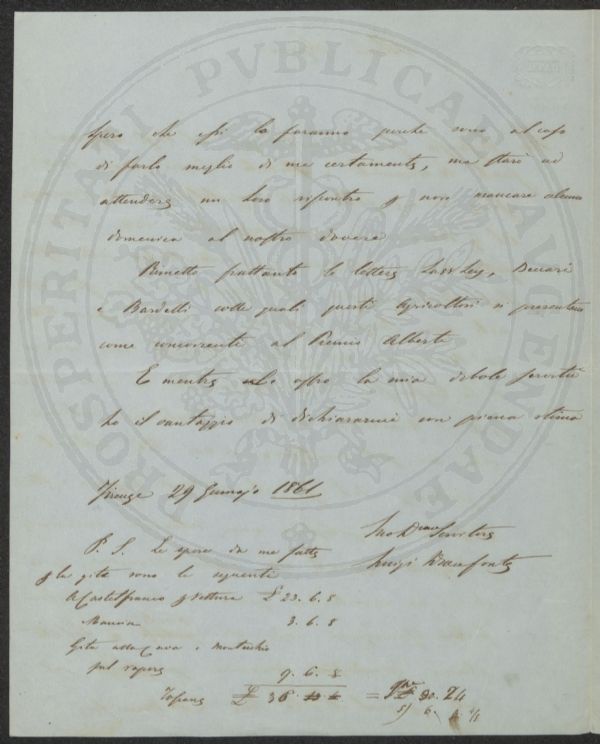 PROSPERITATI PVBLICAE AVGENDAE
spero che essi la faranno perché sono al caso
di farlo meglio di me certamente, ma starò ad
attendere un loro riscontro p non mancare alcuna
domenica al nostro dovere
Rimetto frattanto le lettere Beccari
e Bardelli colle quali questi Agricoltori si presentano
come concorrente al Premio Alberti
E mentre offro la mia debole servitù
ho il vantaggio di dichiararmi con piena stima
Firenze 29 Gennajo 1861
Suo Servitore
Luigi
P. S. Le spese da me fatte
p la gita sono le seguenti
A Castelfranco p Vettura £ 23. 6. 8
Mancia 3. 6. 8
Gita alla Cava e Montecchio
sul vapore 9. 6. 8
Toscane £ 36